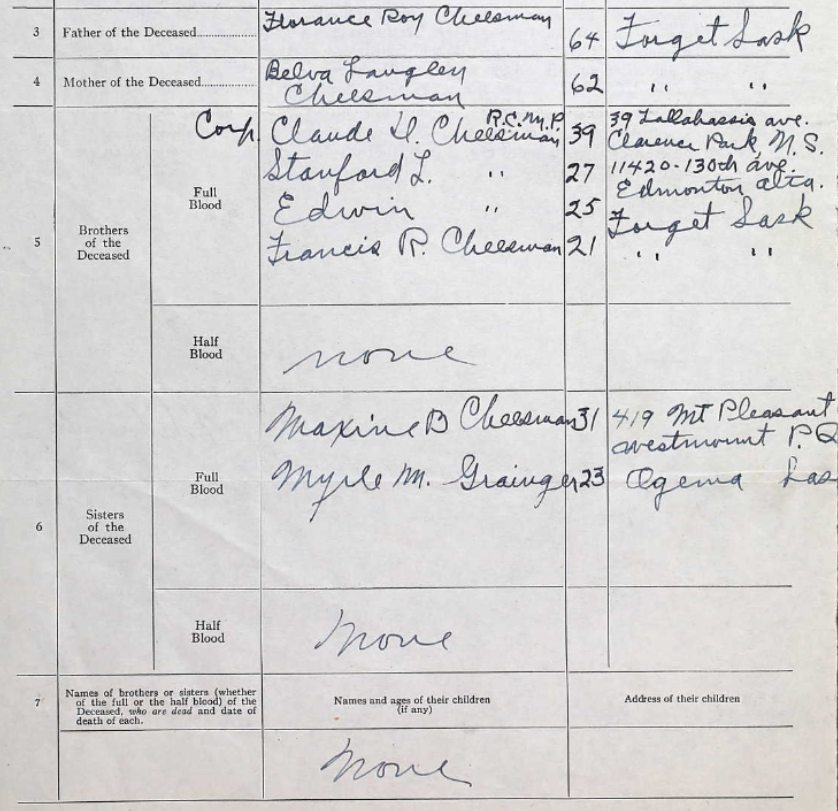 3 Father of the Deceased.................. Florance Roy Cheesman 64 Forget Sask
4 Mother of the Deceased................. Belva Langley Cheesman 62 " "
5 Brothers of the Deceased
Full Blood
Corp. Claude H. Cheesman R.C.M.P. 39 39 Tallahassie ave. Clarence Park, N.S.
Stanford L. " 27 11420-130th ave. Edmonton alta.
Edwin " 25 Forget Sask
Francis R. Cheesman 21 " "
Half Blood
none
6 Sisters of the Deceased
Full Blood
Maxine B Cheesman 31 419 Mt Pleasant westmount P.Q
Myrle M. Grainger 23 Ogema Sas
Half Blood
None
7 Names of brothers or sisters (whether of the full or the half blood) of the Deceased, who are dead and date of death of each.
Names and ages of their children (if any)
Address of their children
None